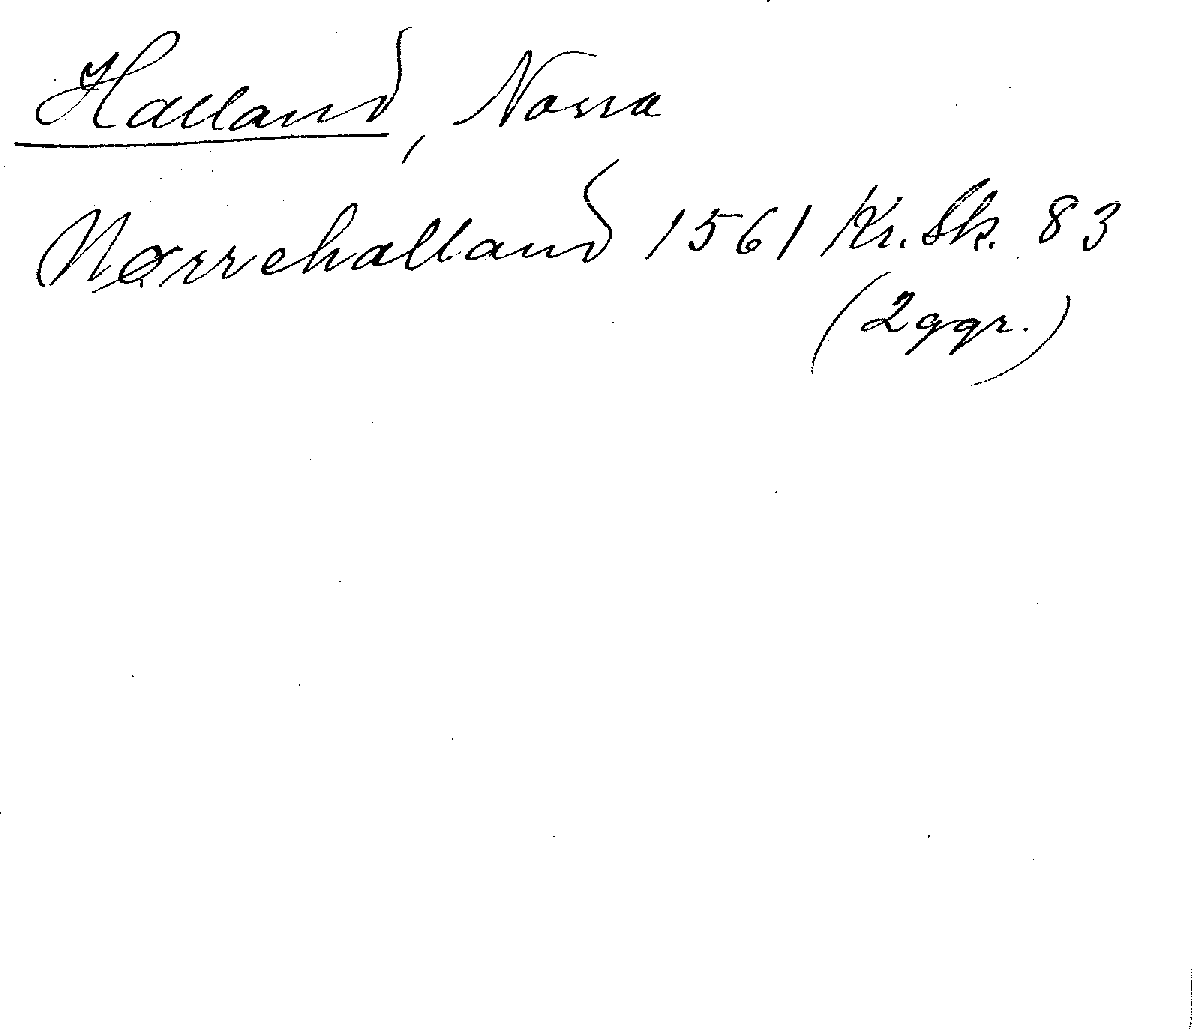 Halland, Norra
Nørrehalland 1561 Kr. Sk. 83
(2 ggr.)